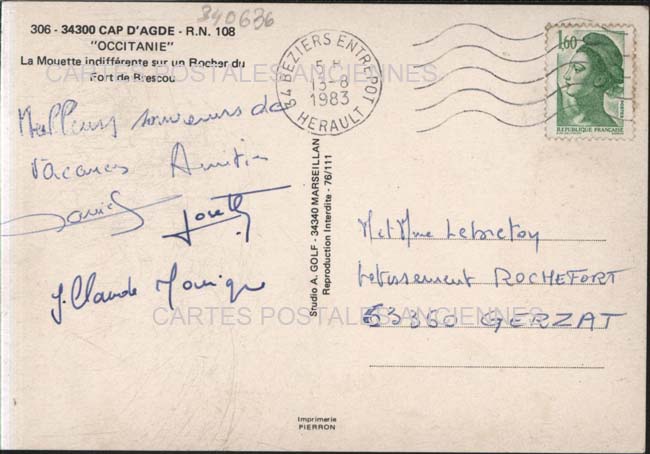 340636
306 - 34300 CAP D'AGDE - R.N. 108
"OCCITANIE"
La Mouette indifférente sur un Rocher du
Fort de Brescou
CARTES POSTALES ANCIENNES
Meilleurs souvenirs de
Vacances Amitiés
Daniel Josette
J. Claude Monique
34 BEZIERS ENTREPOT
13-8
1983
HERAULT
1,60
REPUBLIQUE FRANÇAISE
Studio A. GOLF - 34340 MARSEILLAN
Reproduction Interdite - 76/111
M et Mme Lebretoy
Lotissement ROCHEFORT
63360 GERZAT
CARTES POSTALES ANCIENNES
Imprimerie
PIERRON